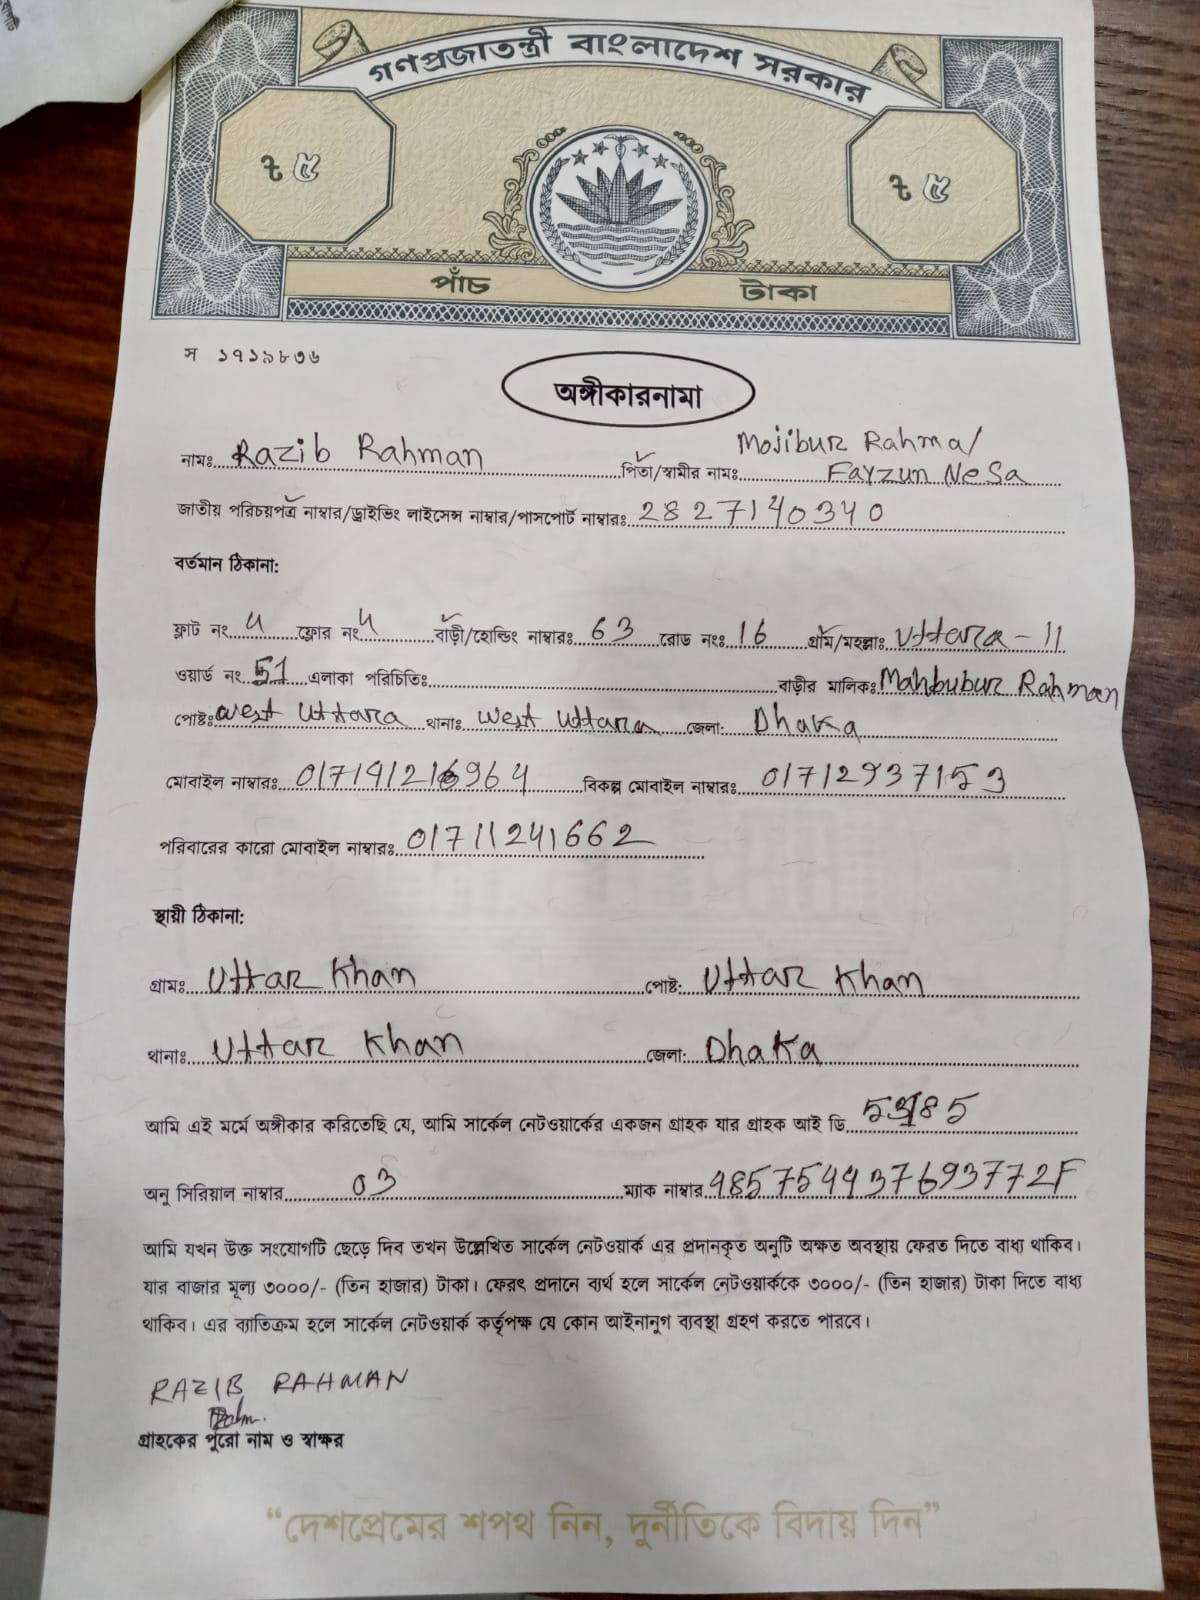 গণপ্রজাতন্ত্রী বাংলাদেশ সরকার
৳ ৫
৳ ৫
পাঁচ টাকা
স ১৭১৯৮৩৬
অঙ্গীকারনামা
নামঃ Razib Rahman পিতা/স্বামীর নামঃ Mojibur Rahma/ Fayzun Nesa
জাতীয় পরিচয়পত্র নাম্বার/ড্রাইভিং লাইসেন্স নাম্বার/পাসপোর্ট নাম্বারঃ 2827140340
বর্তমান ঠিকানা:
ফ্লাট নং 4 ফ্লোর নং 4 বাড়ী/হোল্ডিং নাম্বারঃ 63 রোড নংঃ 16 গ্রাম/মহল্লাঃ Uttara-11
ওয়ার্ড নং 51 এলাকা পরিচিতিঃ বাড়ীর মালিকঃ Mahbubur Rahman
পোষ্টঃ West Uttara থানাঃ West Uttara জেলা: Dhaka
মোবাইল নাম্বারঃ বিকল্প মোবাইল নাম্বারঃ 01712937153
পরিবারের কারো মোবাইল নাম্বারঃ 01711241662
স্থায়ী ঠিকানা:
গ্রামঃ Uttar Khan পোষ্ট: Uttar Khan
থানাঃ Uttar Khan জেলা: Dhaka
আমি এই মর্মে অঙ্গীকার করিতেছি যে, আমি সার্কেল নেটওয়ার্কের একজন গ্রাহক যার গ্রাহক আই ডি
অনু সিরিয়াল নাম্বার 03 ম্যাক নাম্বার
আমি যখন উক্ত সংযোগটি ছেড়ে দিব তখন উল্লেখিত সার্কেল নেটওয়ার্ক এর প্রদানকৃত অনুটি অক্ষত অবস্থায় ফেরত দিতে বাধ্য থাকিব।
যার বাজার মূল্য ৩০০০/- (তিন হাজার) টাকা। ফেরৎ প্রদানে ব্যর্থ হলে সার্কেল নেটওয়ার্ককে ৩০০০/- (তিন হাজার) টাকা দিতে বাধ্য
থাকিব। এর ব্যাতিক্রম হলে সার্কেল নেটওয়ার্ক কর্তৃপক্ষ যে কোন আইনানুগ ব্যবস্থা গ্রহণ করতে পারবে।
RAZIB RAHMAN
গ্রাহকের পুরো নাম ও স্বাক্ষর
“দেশপ্রেমের শপথ নিন, দুর্নীতিকে বিদায় দিন”